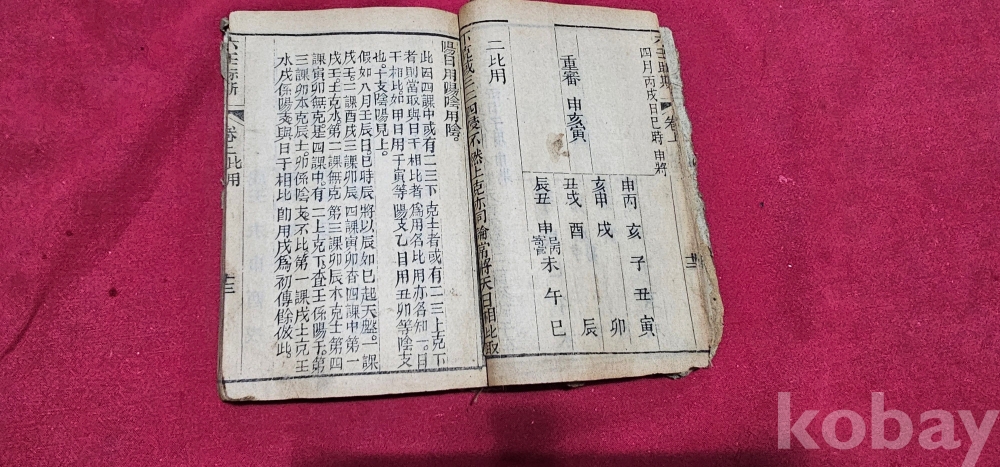 四月丙戌日巳時 申將
重審 申亥寅
申丙 亥 子 丑 寅
亥申 戌 卯
丑戌 酉 辰
辰丑 申 未 午 巳
二比用
陽日用陽陰用陰。
此因四課中或有二三下克上者或有二三上克下
者則當取與日干相比者爲用名比用亦名知一。日
干相比如甲日用子寅等陽支乙日用丑卯等陰支
也。十支陰陽見上。
假如八月壬辰日。巳時辰將以辰加巳起天盤。一課
戌壬。二課酉戌三課卯辰四課寅卯查四課中第一
戌土克壬水第二課無克第三課卯辰木克土第四
課寅卯無克是四課中有二上克下查壬係陽干。第
三課卯木克辰土。卯係陰支不比第一課戌土克壬
水戌係陽支與日干相比即用戌爲初傳餘倣此。
卷上 二比用
kobay